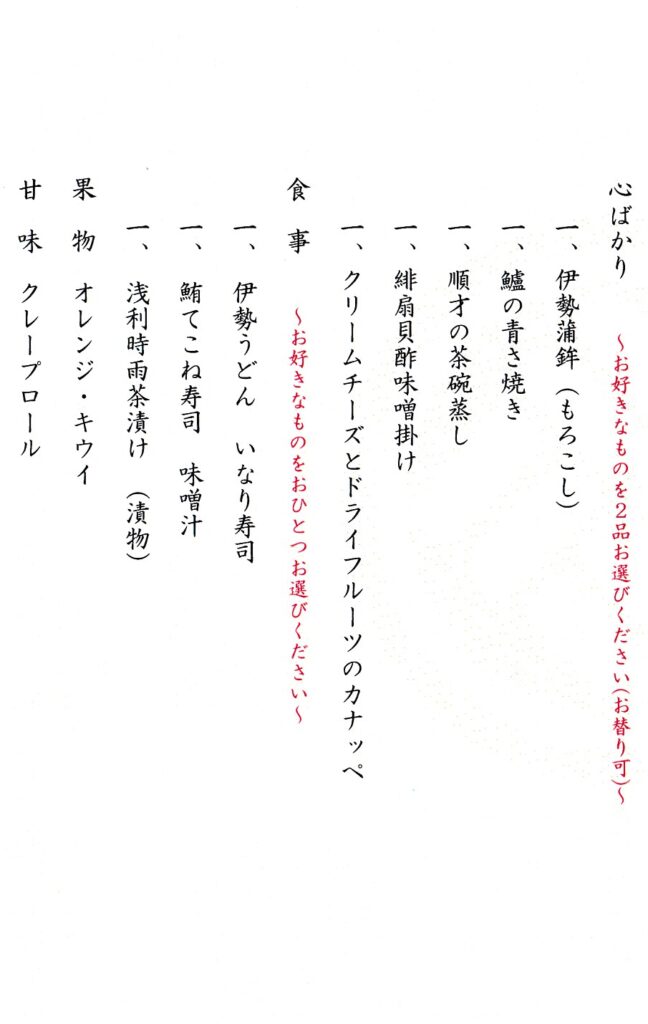 心ばかり　～お好きなものを２品お選びください（お替り可）～
一、伊勢蒲鉾（もろこし）
一、鱸の青さ焼き
一、順才の茶碗蒸し
一、緋扇貝酢味噌掛け
一、クリームチーズとドライフルーツのカナッペ
食　事　～お好きなものをおひとつお選びください～
一、伊勢うどん　いなり寿司
一、鮪てこね寿司　味噌汁
一、浅利時雨茶漬け　（漬物）
果　物　オレンジ・キウイ
甘　味　クレープロール